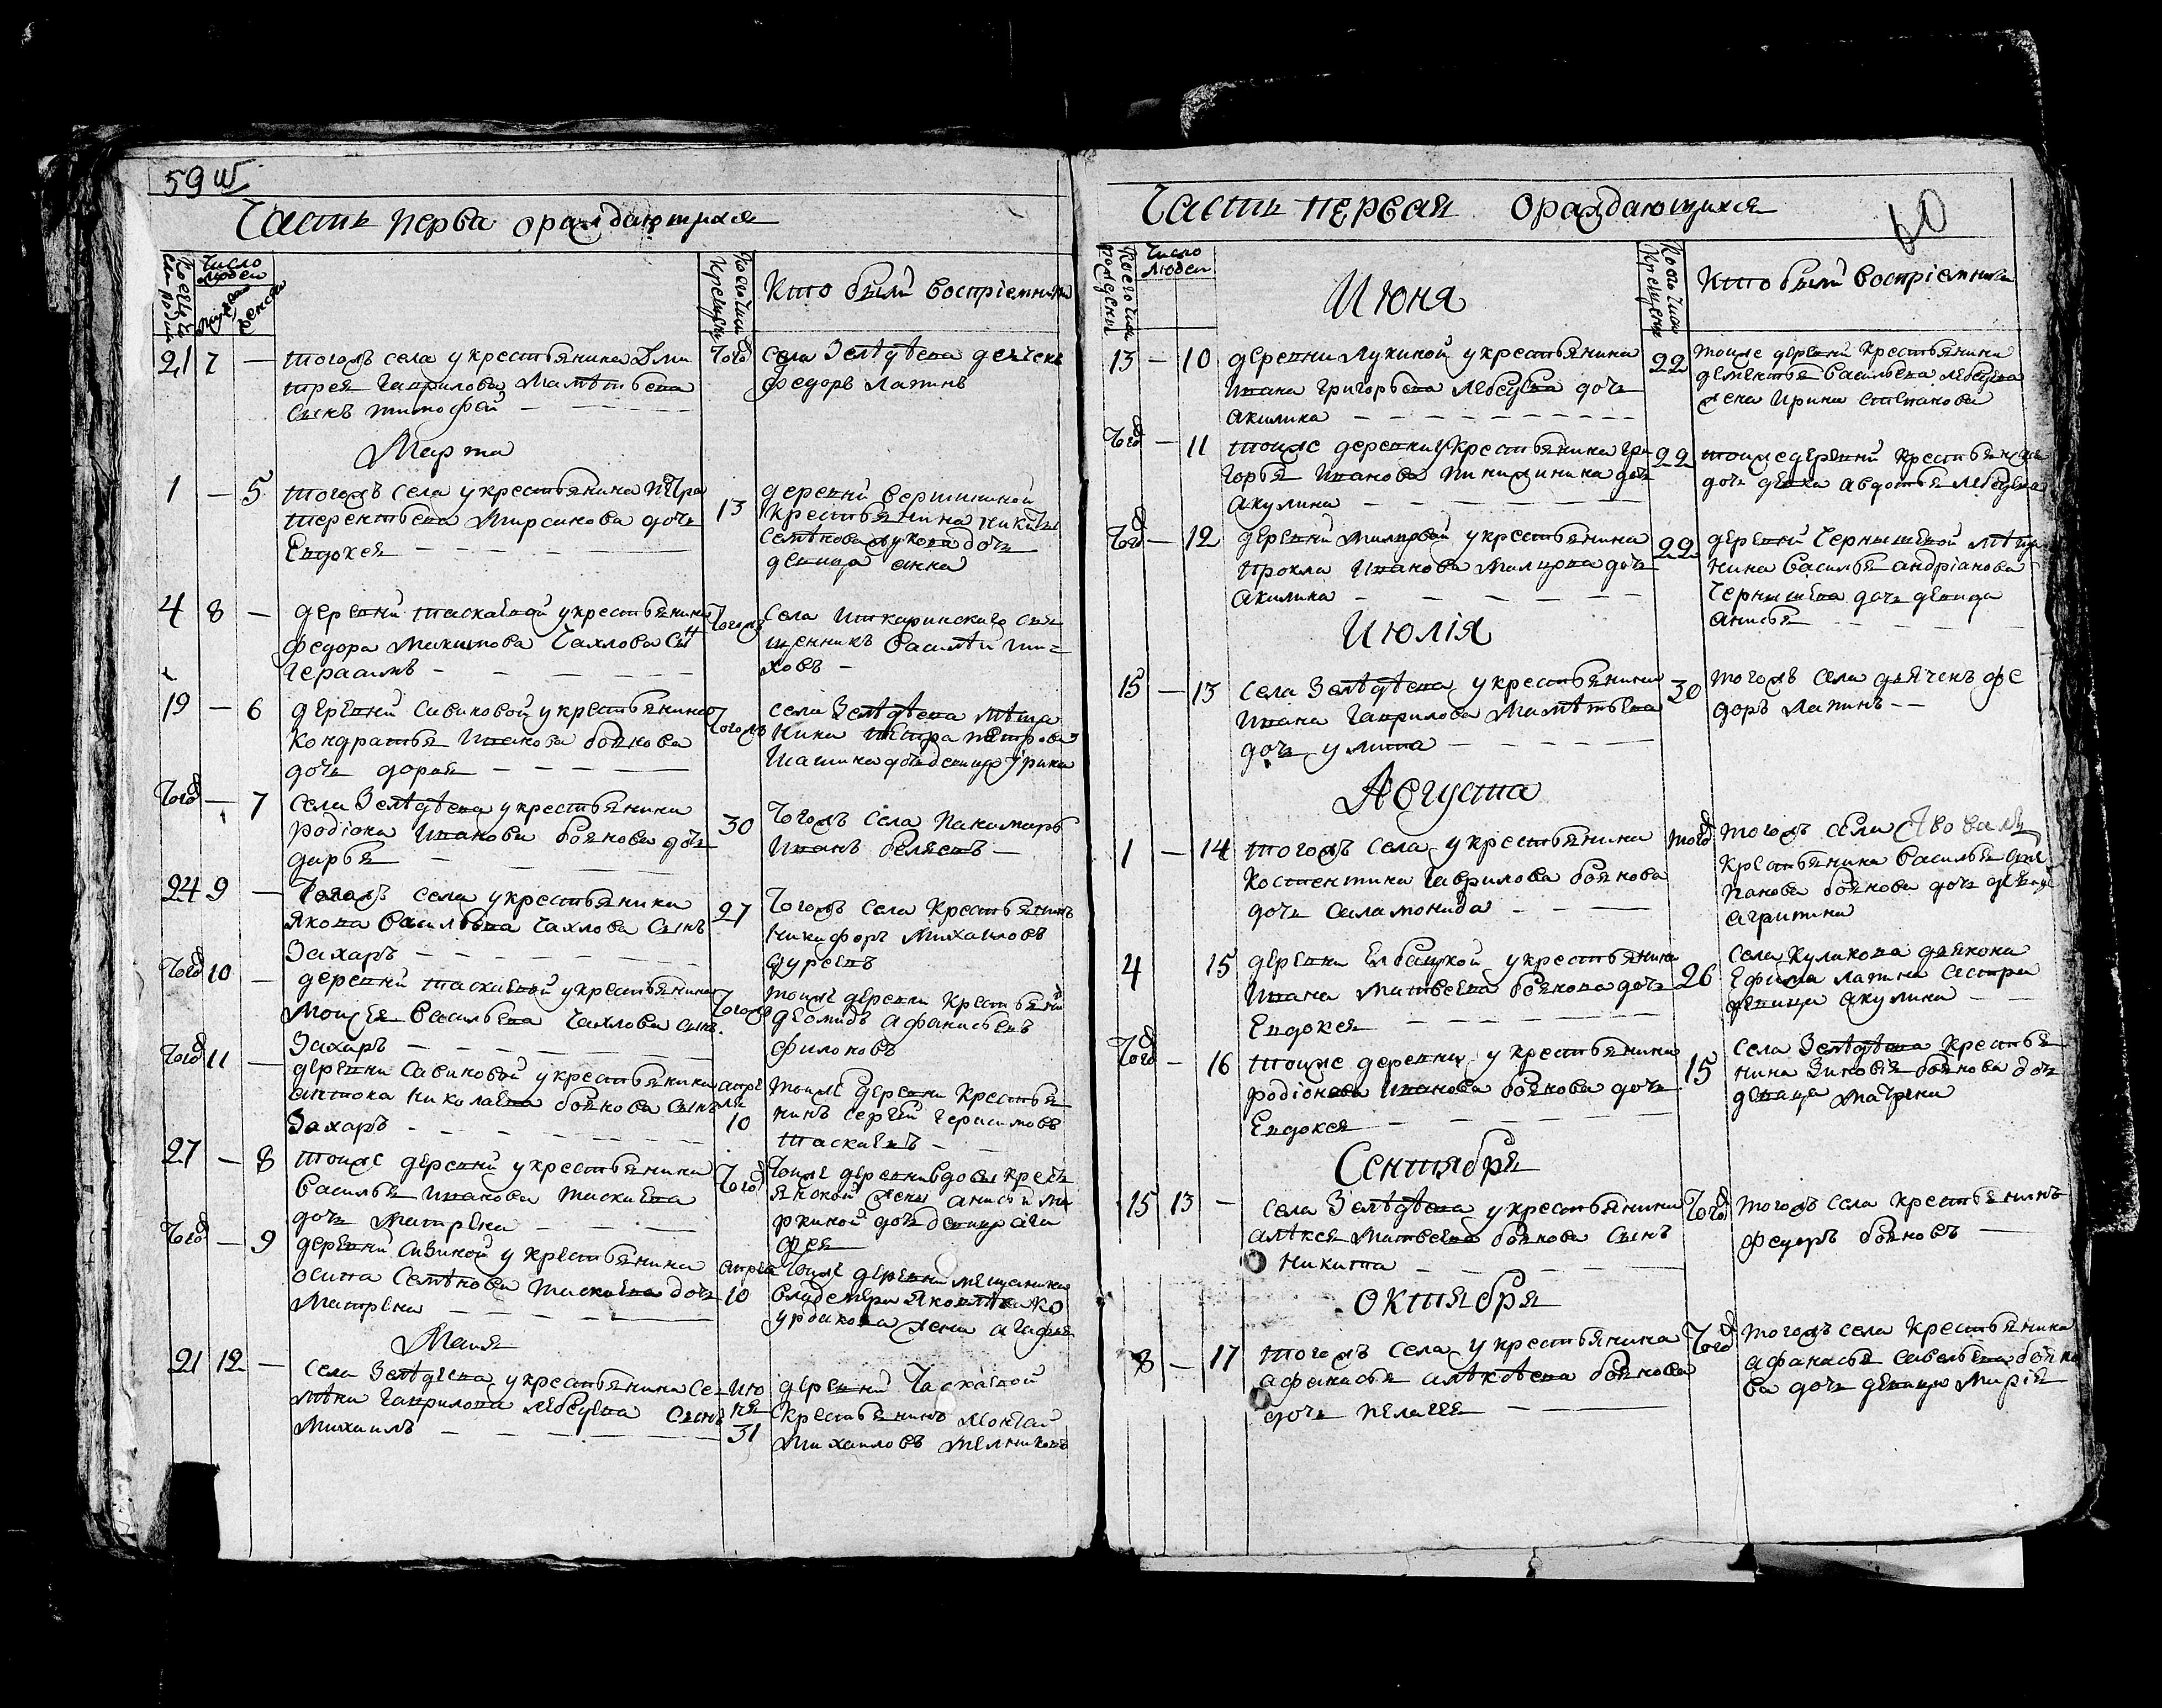 59 об
Часть перва о раждающихся
Число людей
Мужеска
Женска
Кто были восприемники
21 7 — тогожъ села у крестьянина Дми
трея Гаврилова Маметьева
сынъ тимофей
того
села Зелѣдѣева деячекъ
федоръ Лапинъ
Марта
1 — 5 тогожъ села у крестьянина Петра
терентьева Мирсанова дочь
Евдокея
13
деревни вершининой
крестьянина никиты
девица анна
4 8 — деревни таскаевой у крестьянина
федора Микитова Чахлова сынъ
герасимъ
тогожъ
села Иткаринскаго свя
щенникъ василей ти-
ховъ
19 — 6 деревни Савиковой у крестьянина
кондратья Иванова боянова
дочь дарья
тогожъ
села Зелѣдѣева мѣща
нина петра петрова
Шашина дочь девица Ірина
того — 7 села Зелѣдѣева у крестьянина
родіона Иванова боянова дочь
дарья
30
тогожъ села панамарь
Иванъ беляевъ
24 9 — тогожъ села у крестьянина
якова васильева Чахлова сынъ
Захаръ
27
тогожъ села крестьянинъ
никифоръ Михаиловъ
гуреевъ
того 10 — деревни таскаевой у крестьянина
Моисея васильева Чахлова сынъ
Захаръ
тогожъ
тоиже деревни крестьянинъ
деомидъ афанасьевъ
филоновъ
того 11 — деревни Савиковой у крестьянина
антона николаева боянова сынъ
Захаръ
апре
ля
10
тоиже деревни крестья
нинъ сергей герасимовъ
таскаевъ
27 — 8 тоиже деревни у крестьянина
василья Иванова таскаева
дочь матрена
того
тоиже деревни вдовы кресть
янской жены анисьи ма
ркиной дочь девица ага
фея
того — 9 деревни Савикой у крестьянина
осипа Семѣнова таскаева дочь
Матрена
апреля
10
тоиже деревни мещанина
владемера яковлева ко
урдакова жена агафья
Маия
21 12 — села Зелѣдеева у крестьянина се-
мѣна гаврилова лебедева сынъ
Михаилъ
ию
ня
31
деревни таскаевой
крестьянинъ
Михаиловъ мелниковъ
Часть первая о раждающихся
60
Число
людей
Июня
Кто были восприемники
13 — 10 деревни Лукиной у крестьянина
Ивана григорьева Лебедева дочь
акилина
22
тоиже деревни крестьянина
дементья васильева лебедева
жена Ирина степанова
того — 11 тоиже деревни у крестьянина гри
горья Иванова дочь
акулина
22
тоиже деревни крестьянина
дочь девка авдотья лебедева
того — 12 деревни у крестьянина
прокла Иванова дочь
акилина
22
деревни Чернышевой мѣща
нина василья андріанова
Чернышева дочь девица
анисья
Июлія
15 — 13 села Зелѣдѣева у крестьянина
Ивана гаврилова Маметьева
дочь улита
30
тогожъ села дьячекъ фе
доръ Лапинъ
Августа
1 — 14 тогожъ села у крестьянина
костентина гаврилова боянова
дочь саламонида
того
тогожъ села
крестьянина василья сте
панова боянова дочь девица
агрипина
4 15 деревни Елбацкой у крестьянина
Ивана Матвеева боянова дочь
Евдокея
26
села куликова дьякона
Ефима лапина сестра
девица акулина
того — 16 тоиже деревни у крестьянина
родіонова Иванова боянова дочь
Евдокея
15
села Зелѣдѣева крестья
нина Зиновья боянова дочь
девица матрена
Сентября
15 13 — села Зелѣдѣева у крестьянина
алѣксея Матвеева боянова сынъ
никита
того
тогожъ села крестьянинъ
федоръ бояновъ
Октября
8 — 17 тогожъ села у крестьянина
афанасья алѣксѣева боянова
дочь пелагея
того
тогожъ села крестьянина
афанасья савельева бояно
ва дочь девица Марія